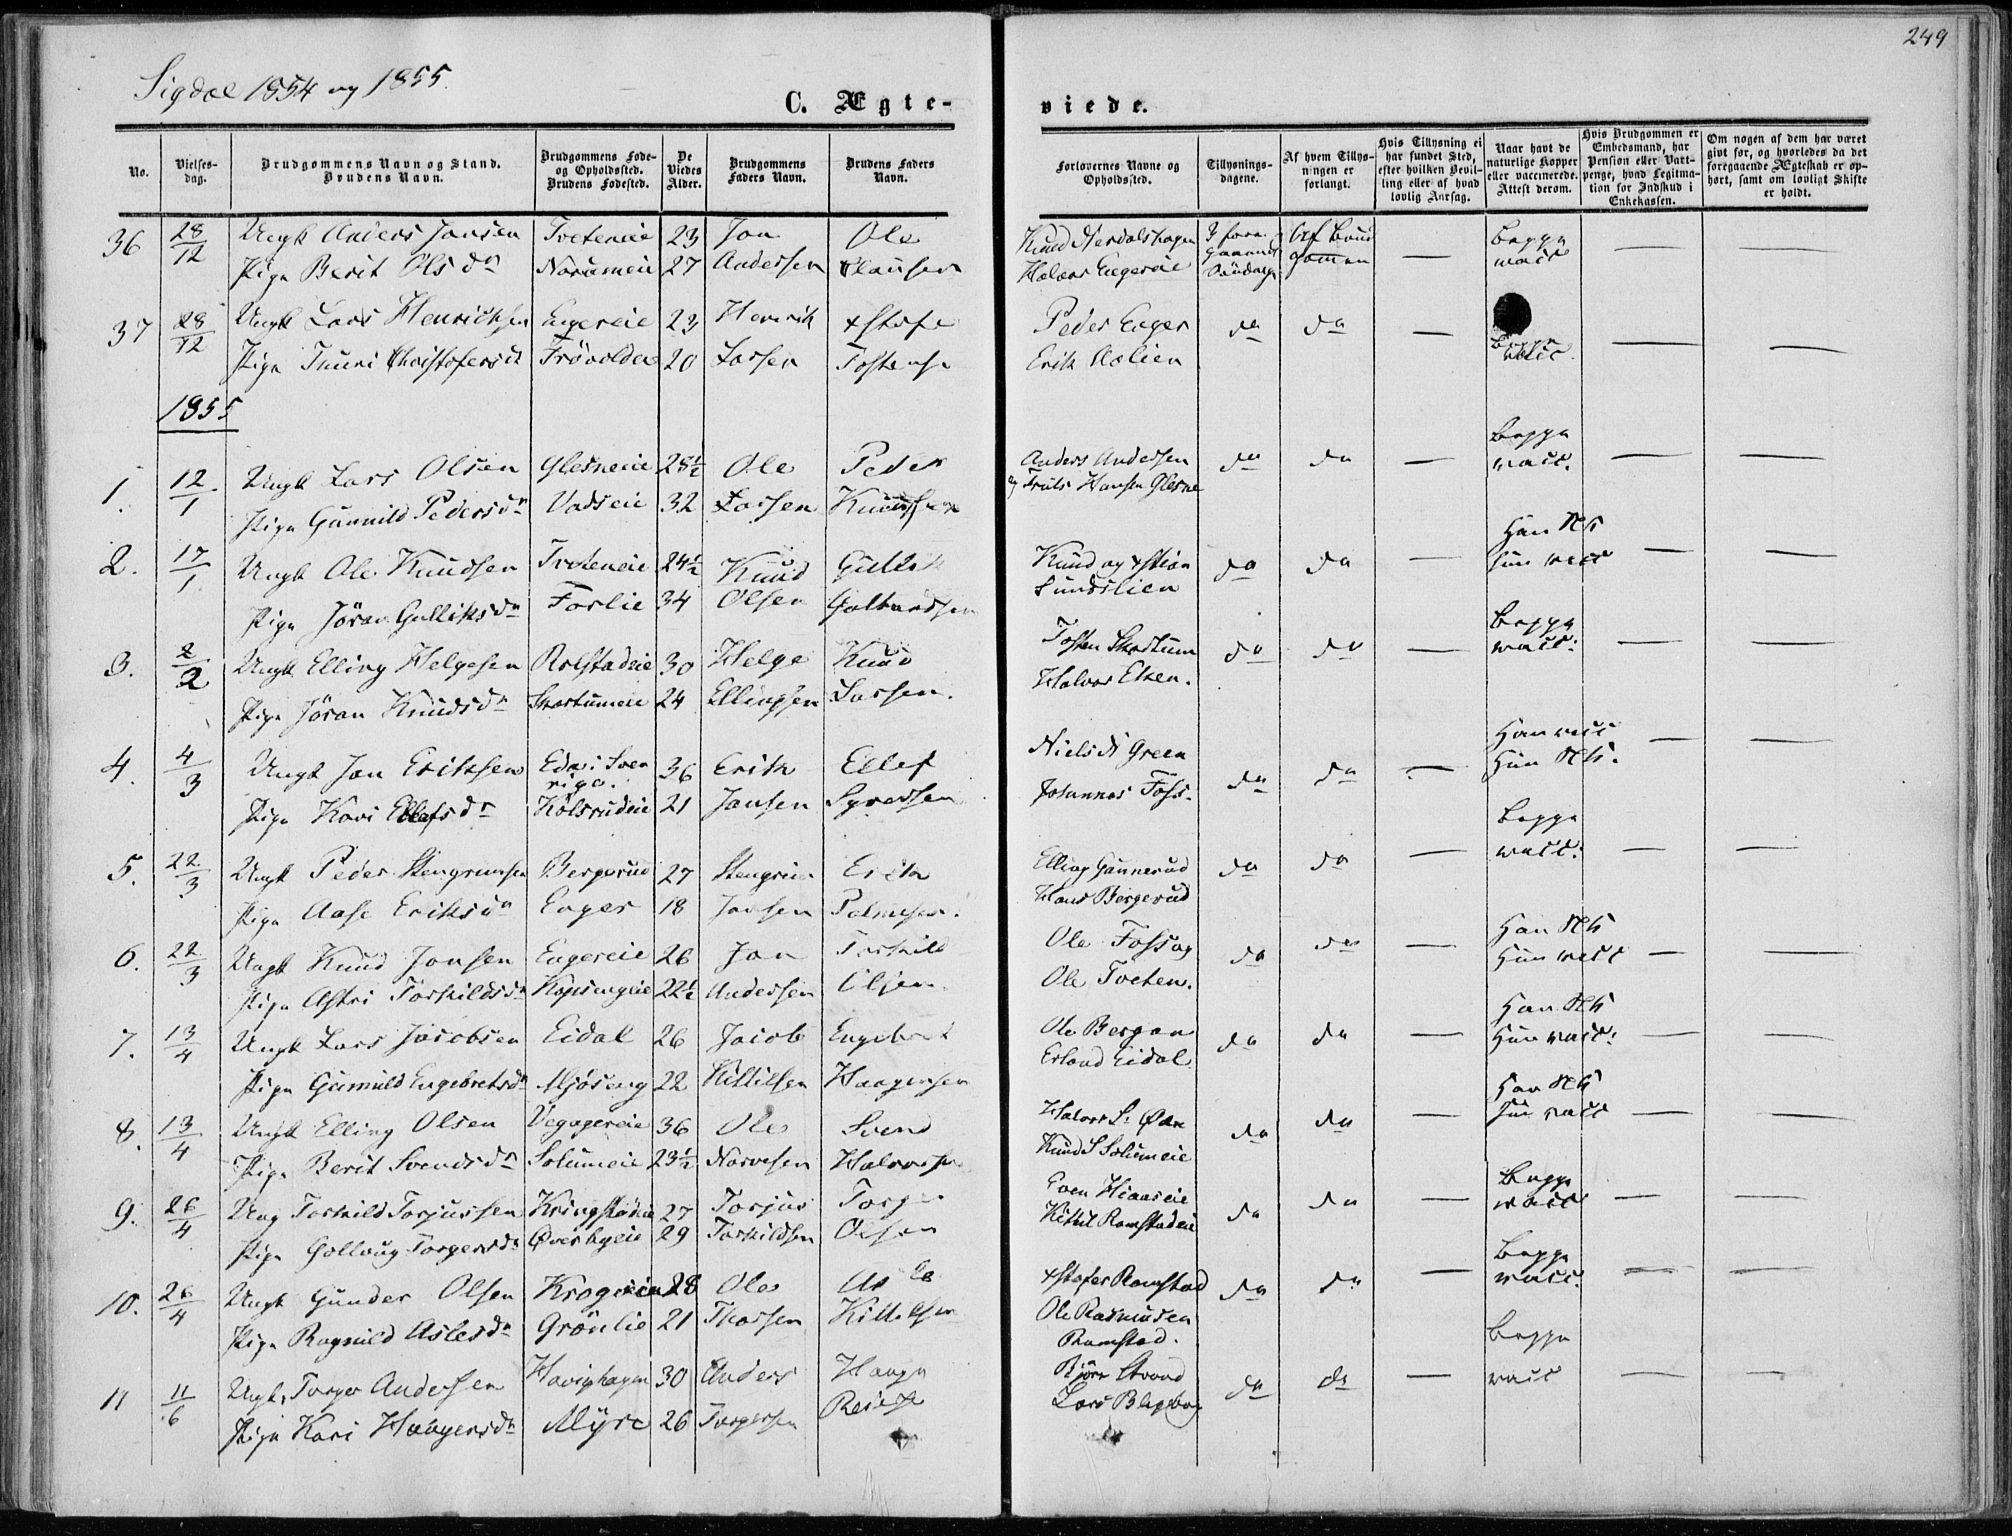 249
Sigdal 1854 og 1855.
C. Ægte-
viede.
No.
Vielses-
dag.
Brudgommens Navn og Stand.
Brudens Navn.
Brudgommens Føde-
og Opholdssted.
Brudens Fødested.
De
Viedes
Alder.
Brudgommens
Faders Navn.
Brudens Faders
Navn.
Forlovernes Navne og
Opholdssted.
Tillysnings-
dagene.
Af hvem Tillys-
ningen er
forlangt.
Hvis Tillysning ei
har fundet Sted,
efter hvilken Bevil-
ling eller af hvad
lovlig Aarsag.
Naar havt de
naturlige Kopper
eller vaccinerede.
Attest derom.
Hvis Brudgommen er
Embedsmand, har
Pension eller Vart-
penge, hvad Legitima-
tion for Indskud i
Enkekassen.
Om nogen af dem har været
givt før, og hvorledes da det
foregaaende Ægteskab er op-
hørt, samt om lovligt Skifte
er holdt.
36 28/12 Ungk Anders Jonsen Tveteneie 23 Jon Ole Knud Nerdalshagen Begge
Pige Berit Olsdn 27 Andersen Clausen Halvor Engereie vacc
37 28/12 Ungk Lars Henrichsen Engereie 23 Henrik Xstofe Peder Enger do do — Begge — —
Pige Thuri Christofersdn Frövolden 20 Larsen Tostensen Erik vacc.
1855
1. 12/1 Ungk Lars Olsen Glesneeie 28½ Ole Peder Anders Andersen do do — Begge vacc. — —
Pige Gunnild Pedersdn Vadseie 32 Larsen Knudsen og Truls Hansen Glesne
2. 17/1 Ungk Ole Knudsen Tveteneie 24½ Knud Gullik Knud og Xstian do do — Han N.K. Hun vacc — —
Pige Jöran Gulliksdn Forlie 34 Olsen Gulbrandsen Sundslien
3. 2/2 Ungk Elling Helgesen Rolstadeie 30 Helge Knud Tosten Skartum do do — Begge vacc. — —
Pige Jöran Knudsdn Skartumeie 24 Ellingsen Larsen. Halvor Elsen.
4. 4/3 Ungk Jon Eriksen Eda i Sverrige. 36 Erik Ellef Niels N Green do do — Han vacc — —
Pige Kari Ellefsdn Kolsrudeie 21 Jonsen Syversen Johannes Foss. Hun N.K.
5. 22/3 Ungk Peder Stengrimsen Bergerud 27 Stengrim Erik Elling Gunnerud do do — Begge vacc. — —
Pige Aase Eriksdn Enger 18 Jonsen Palmesen. Hans Bergerud
6. 22/3 Ungk Knud Jonsen Engereie 26 Jon Torkild Ole Foss og do do — Han N.K. — —
Pige Astri Torkildsdn Kopsengeie 22½ Andersen Olsen Ole Tveten. Hun vacc
7. 13/4 Ungk Lars Jacobsen Eidal 26 Jacob Engebret Ole Bergan do do — Han N.K. — —
Pige Gunnild Engebretsdn Mjöseng 22 Kittilsen Haagensen Erland Eidal Hun vacc.
8. 13/4 Ungk Elling Olsen 36 Ole Svend do do — Han N.K. — —
Pige Berit Svendsdn Solumeie 23½ Narvesen Halvorsen Knud S Solumeie Hun vacc
9. 26/4 Ung Torkild Torjussen 27 Torjus Torger Even do do — Begge — —
Pige Gollaug Torgersdn Överbyeie 29 Torkildsen Olsen Kittil Ramstadeie vacc
10. 26/4 Ungk Gunder Olsen 28 Ole Xstofer Ramstad do do — Begge vacc. — —
Pige Ragnild Aslesdn Grönlie 21 Thorsen Kittilsen Ole Rasmusen
Ramstad.
11 11/6 Ungk. Torger Andersen Havighagen 30 Anders Haagen Björn Strand do do — Begge vacc — —
Pige Kari Haagensdn Myre 26 Torgersen Lars